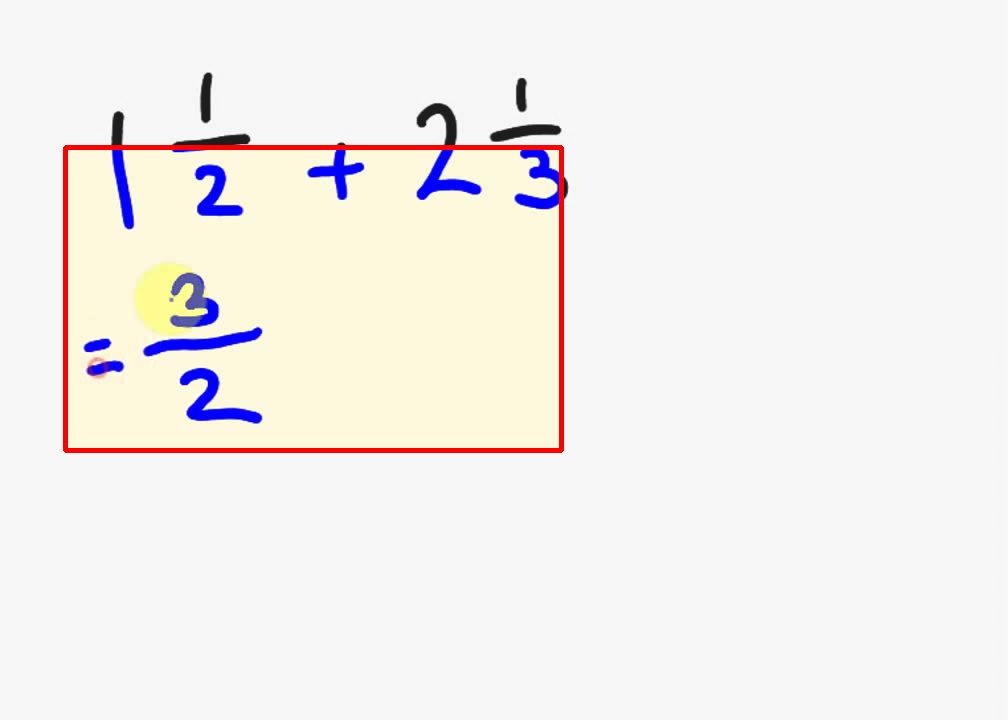 1 1/2 + 2 1/3
= 3/2